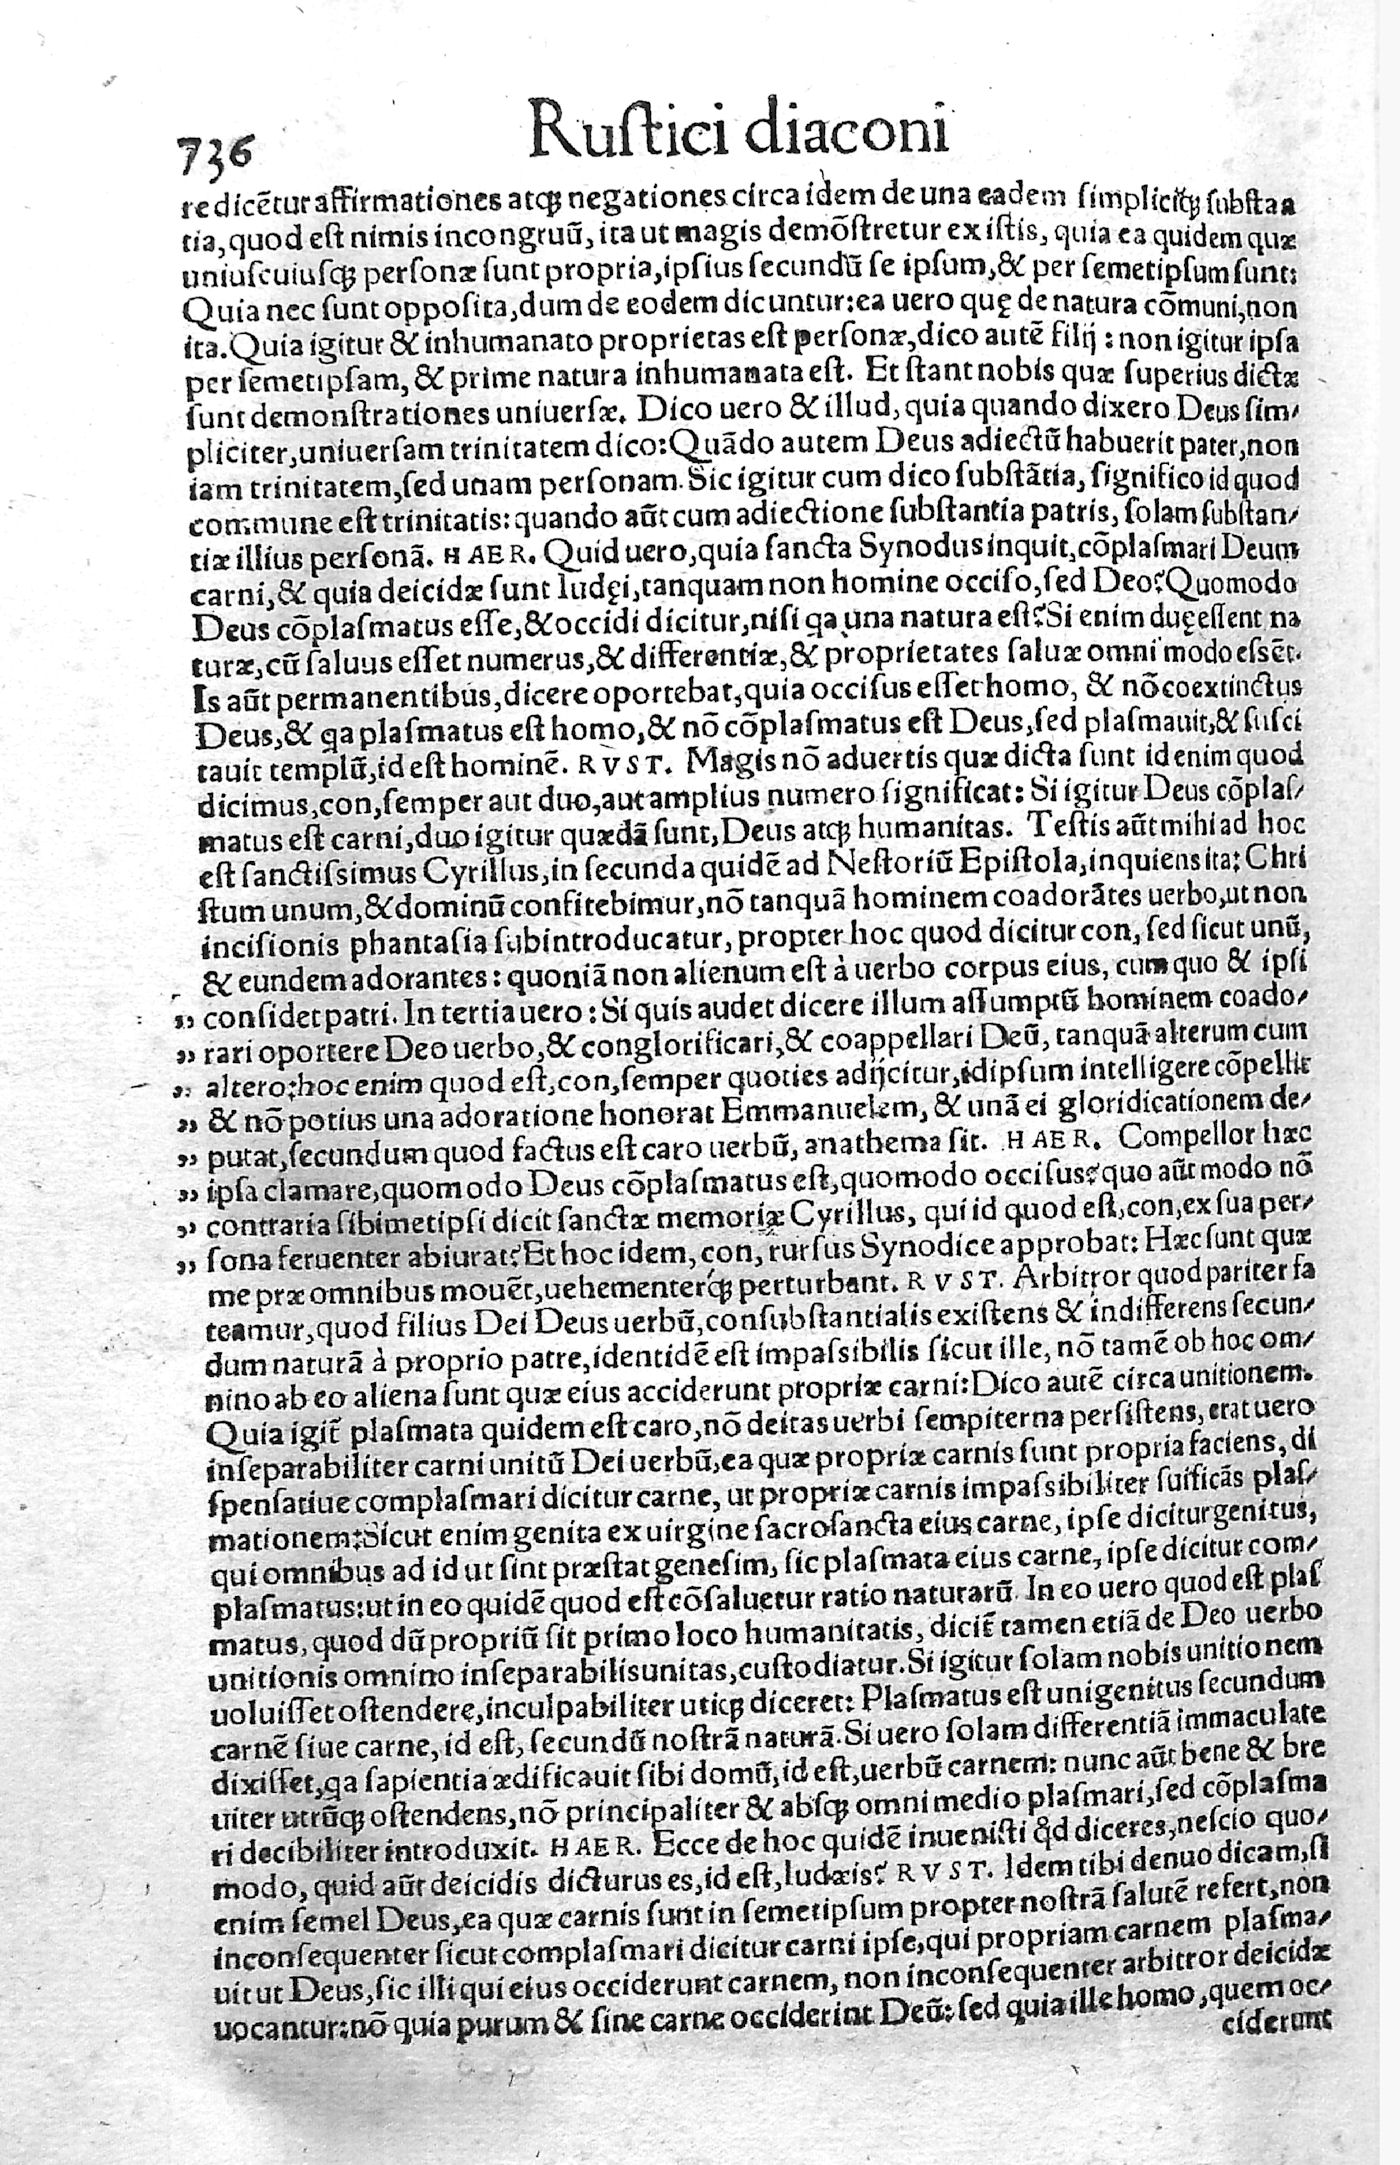 736
Rustici diaconi
re dicẽtur affirmationes atq; negationes circa idem de una eadem simpliciq; substan
tia, quod est nimis incongruũ, ita ut magis demõstretur ex istis, quia ea quidem quæ
uniuscuiusq; personæ sunt propria, ipsius secundũ se ipsum, & per semetipsum sunt:
Quia nec sunt opposita, dum de eodem dicuntur: ea uero quę de natura cõmuni, non
ita. Quia igitur & inhumanato proprietas est personæ, dico autẽ filij: non igitur ipsa
per semetipsam, & prime natura inhumanata est. Et stant nobis quæ superius dictæ
sunt demonstrationes uniuersæ. Dico uero & illud, quia quando dixero Deus sim-
pliciter, uniuersam trinitatem dico: Quãdo autem Deus adiectũ habuerit pater, non
iam trinitatem, sed unam personam. Sic igitur cum dico substãtia, significo id quod
commune est trinitatis: quando aũt cum adiectione substantia patris, solam substan-
tiæ illius personã. HAER. Quid uero, quia sancta Synodus inquit, cõplasmari Deum
carni, & quia deicidæ sunt Iudęi, tanquam non homine occiso, sed Deo? Quomodo
Deus cõplasmatus esse, & occidi dicitur, nisi qa una natura est? Si enim duę essent na
turæ, cũ saluus esset numerus, & differentiæ, & proprietates saluæ omni modo essẽt.
Is aũt permanentibus, dicere oportebat, quia occisus esset homo, & nõ coextinctus
Deus, & qa plasmatus est homo, & nõ cõplasmatus est Deus, sed plasmauit, & susci
tauit templũ, id est hominẽ. RVST. Magis nõ aduertis quæ dicta sunt id enim quod
dicimus, con, semper aut duo, aut amplius numero significat: Si igitur Deus cõplas-
matus est carni, duo igitur quædã sunt, Deus atq; humanitas. Testis aũt mihi ad hoc
est sanctissimus Cyrillus, in secunda quidẽ ad Nestoriũ Epistola, inquiens ita: Chri
stum unum, & dominũ confitebimur, nõ tanquã hominem coadorãtes uerbo, ut non
incisionis phantasia subintroducatur, propter hoc quod dicitur con, sed sicut unũ,
& eundem adorantes: quoniã non alienum est à uerbo corpus eius, cum quo & ipsi
,, considet patri. In tertia uero: Si quis audet dicere illum assumptũ hominem coado-
,, rari oportere Deo uerbo, & conglorificari, & coappellari Deũ, tanquã alterum cum
,, altero: hoc enim quod est, con, semper quoties adijcitur, idipsum intelligere cõpellit
,, & nõ potius una adoratione honorat Emmanuelem, & unã ei gloridicationem de-
,, putat, secundum quod factus est caro uerbũ, anathema sit. HAER. Compellor hæc
,, ipsa clamare, quomodo Deus cõplasmatus est, quomodo occisus? quo aũt modo nõ
,, contraria sibimetipsi dicit sanctæ memoriæ Cyrillus, qui id quod est, con, ex sua per-
,, sona feruenter abiurat? Et hoc idem, con, rursus Synodice approbat: Hæc sunt quæ
me præ omnibus mouẽt, uehementerq; perturbant. RVST. Arbitror quod pariter fa
teamur, quod filius Dei Deus uerbũ, consubstantialis existens & indifferens secun-
dum naturã à proprio patre, identidẽ est impassibilis sicut ille, nõ tamẽ ob hoc om-
nino ab eo aliena sunt quæ eius acciderunt propriæ carni: Dico autẽ circa unitionem.
Quia igit̃ plasmata quidem est caro, nõ deitas uerbi sempiterna persistens, erat uero
inseparabiliter carni unitũ Dei uerbũ, ea quæ propriæ carnis sunt propria faciens, di
spensatiue complasmari dicitur carne, ut propriæ carnis impassibiliter suificãs plas-
mationem: Sicut enim genita ex uirgine sacrosancta eius carne, ipse dicitur genitus,
qui omnibus ad id ut sint præstat genesim, sic plasmata eius carne, ipse dicitur com-
plasmatus: ut in eo quidẽ quod est cõsaluetur ratio naturarũ. In eo uero quod est plas
matus, quod dũ propriũ sit primo loco humanitatis, dicit̃ tamen etiã de Deo uerbo
unitionis omnino inseparabilis unitas, custodiatur. Si igitur solam nobis unitionem
uoluisset ostendere, inculpabiliter utiq; diceret: Plasmatus est unigenitus secundum
carnẽ siue carne, id est, secundũ nostrã naturã. Si uero solam differentiã immaculate
dixisset, qa sapientia ædificauit sibi domũ, id est, uerbũ carnem: nunc aũt bene & bre
uiter utrũq; ostendens, nõ principaliter & absq; omni medio plasmari, sed cõplasma
ri decibiliter introduxit. HAER. Ecce de hoc quidẽ inuenisti qd diceres, nescio quo-
modo, quid aũt deicidis dicturus es, id est, Iudæis? RVST. Idem tibi denuo dicam, si
enim semel Deus, ea quæ carnis sunt in semetipsum propter nostrã salutẽ refert, non
inconsequenter sicut complasmari dicitur carni ipse, qui propriam carnem plasma-
uit ut Deus, sic illi qui eius occiderunt carnem, non inconsequenter arbitror deicidæ
uocantur: nõ quia purum & sine carne occiderint Deũ: sed quia ille homo, quem oc-
ciderunt